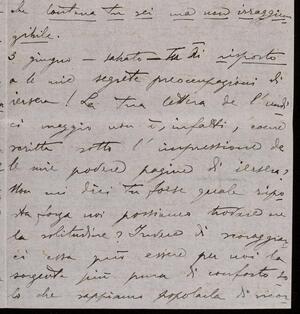 che lontana tu sei ma non irraggiun
gibile.
3 giugno - sabato - Tu hai risposto
a le mie segrete preoccupazioni di
iersera! La tua lettera de l'undi
ci maggio non è, infatti, come
scritta sotto l'impressione de
le mie povere pagine di iersera?
Non mi dici tu forse quale ripo
sta forza noi possiamo trovare ne
la solitudine? Invece di scoraggiar
ci essa può essere per noi la
sorgente più pura di conforto so
lo che sappiamo popolarla di